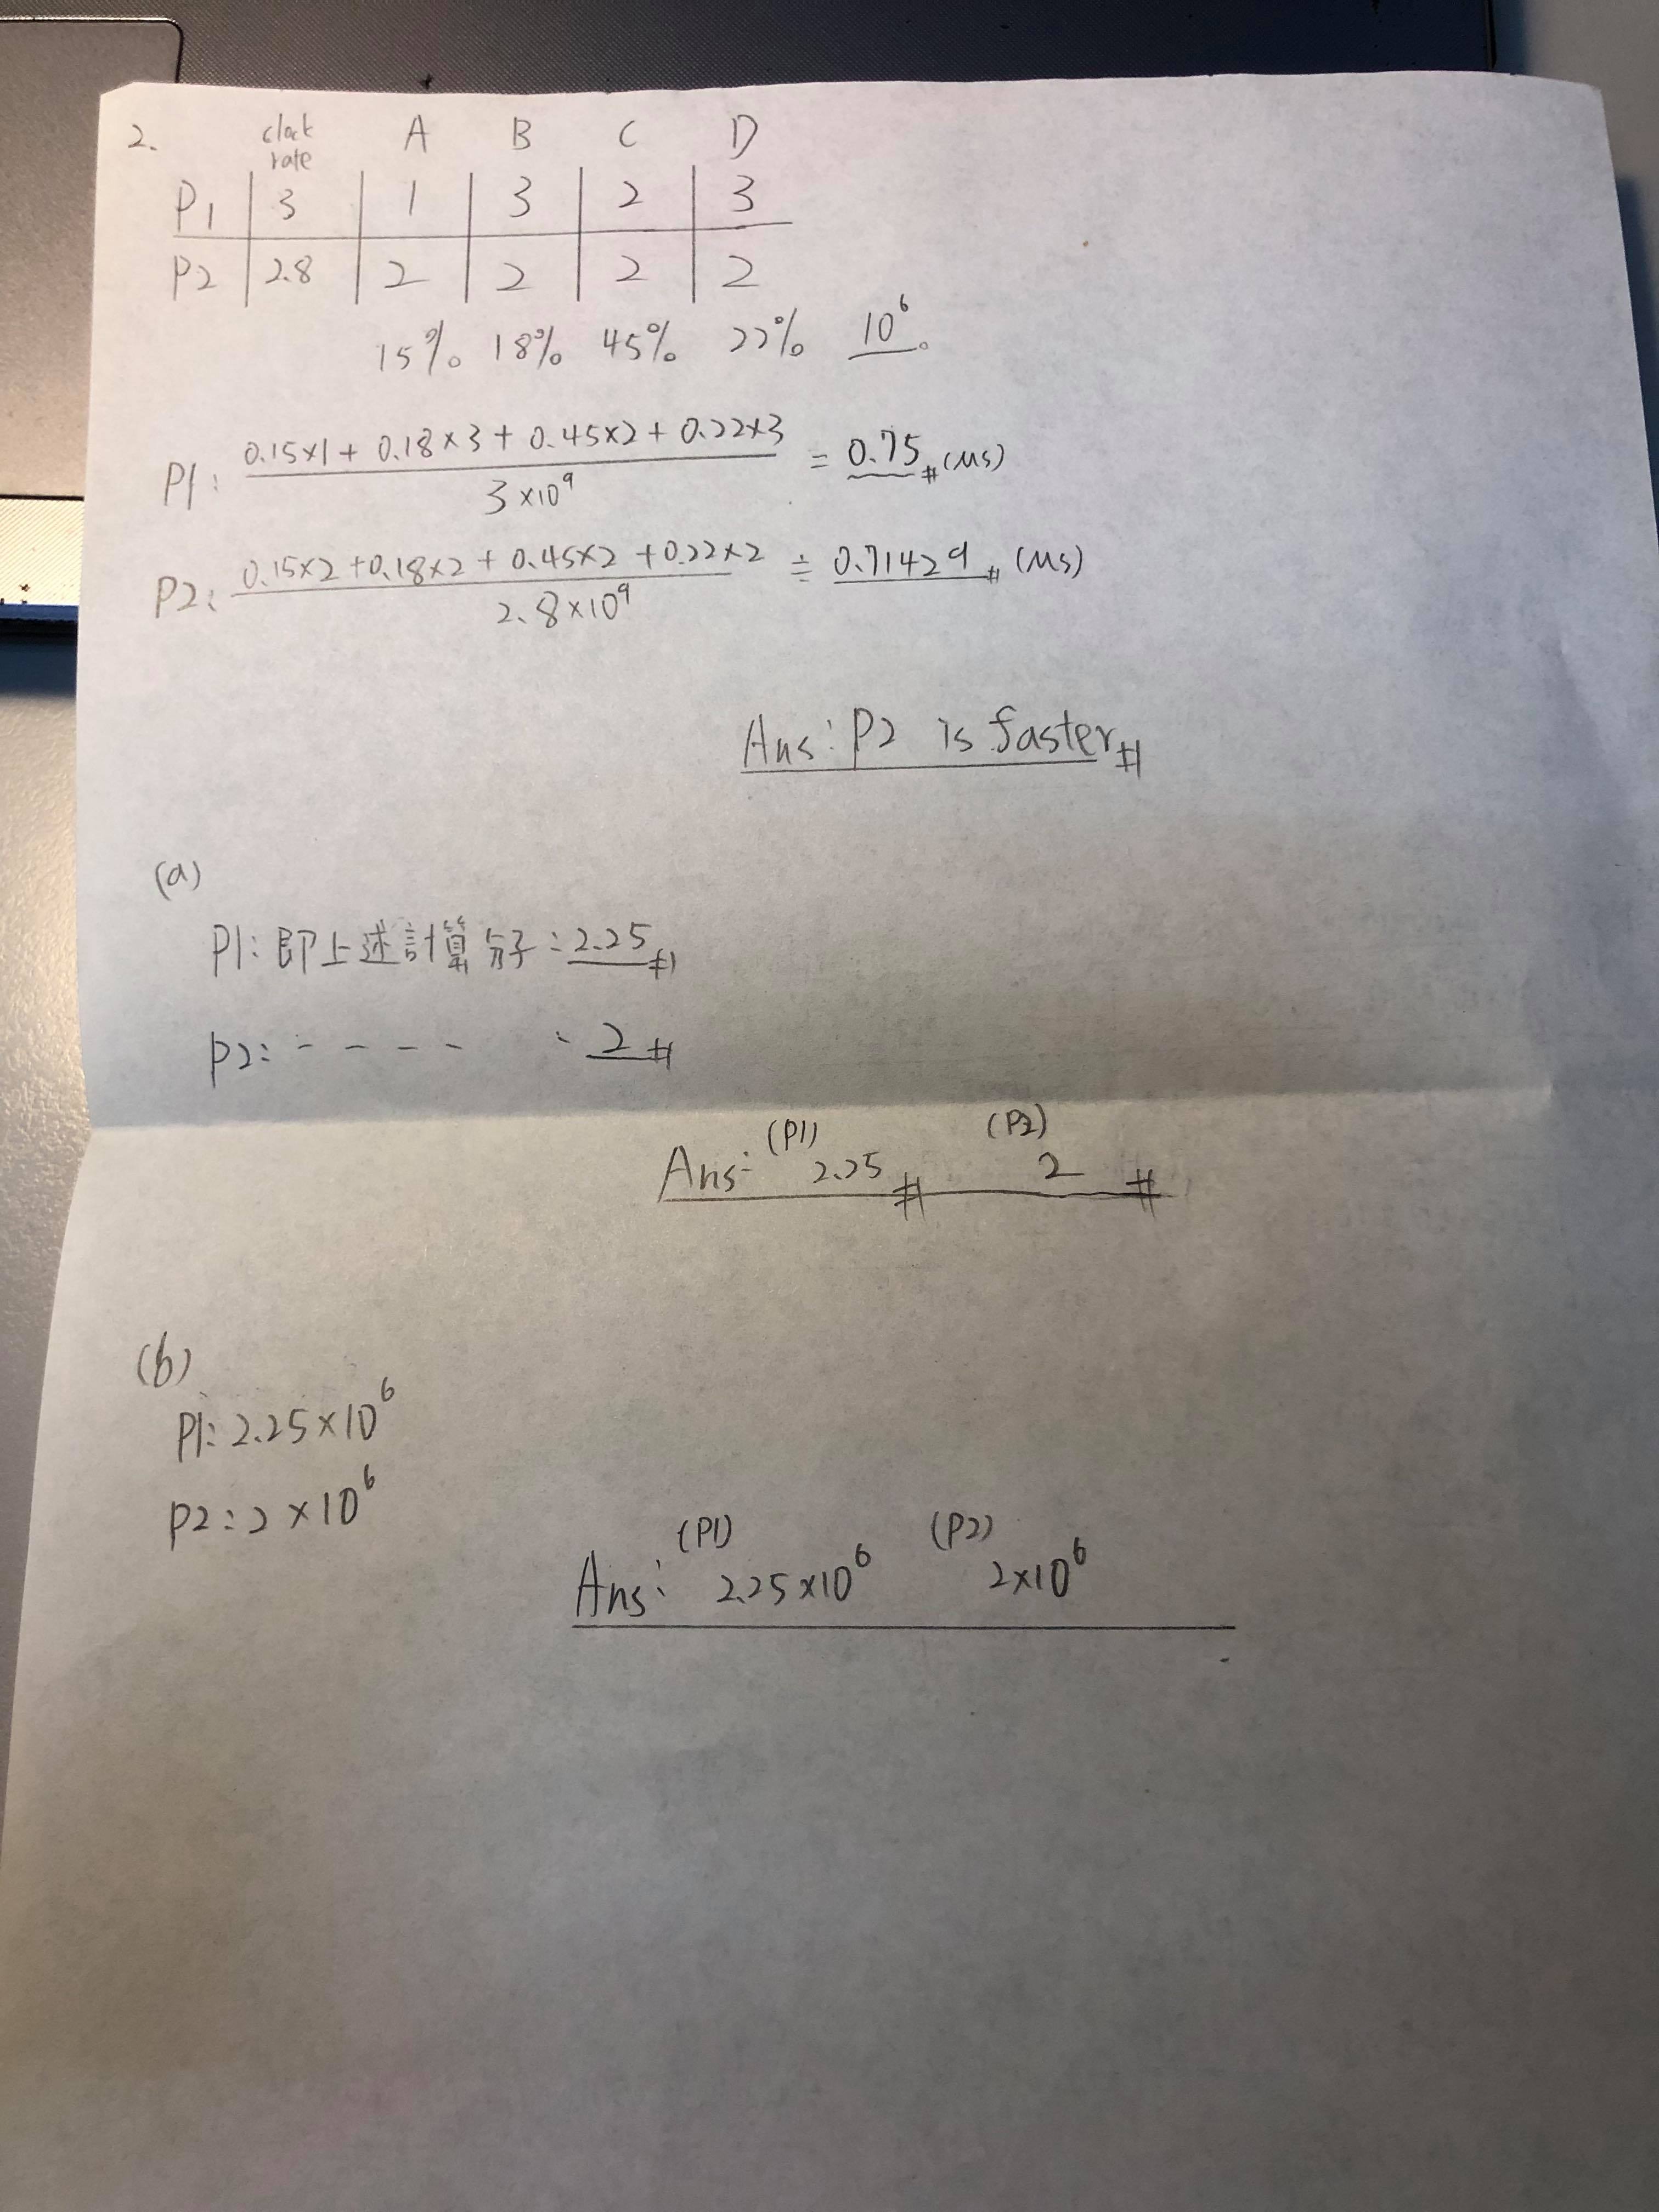 2. clock rate A B C D
P1 3 1 3 2 3
P2 2.8 2 2 2 2
15% 18% 45% 22% 10^6。
P1: (0.15×1 + 0.18×3 + 0.45×2 + 0.22×3) / (3×10^9) = 0.75 # (μs)
P2: (0.15×2 + 0.18×2 + 0.45×2 + 0.22×2) / (2.8×10^9) ≒ 0.71429 # (μs)
Ans: P2 is faster #
(a)
P1: 即上述計算分子: 2.25 #
P2: - - - - : 2 #
Ans: (P1) 2.25 # (P2) 2 #
(b)
P1: 2.25×10^6
P2: 2×10^6
Ans: (P1) 2.25×10^6 (P2) 2×10^6